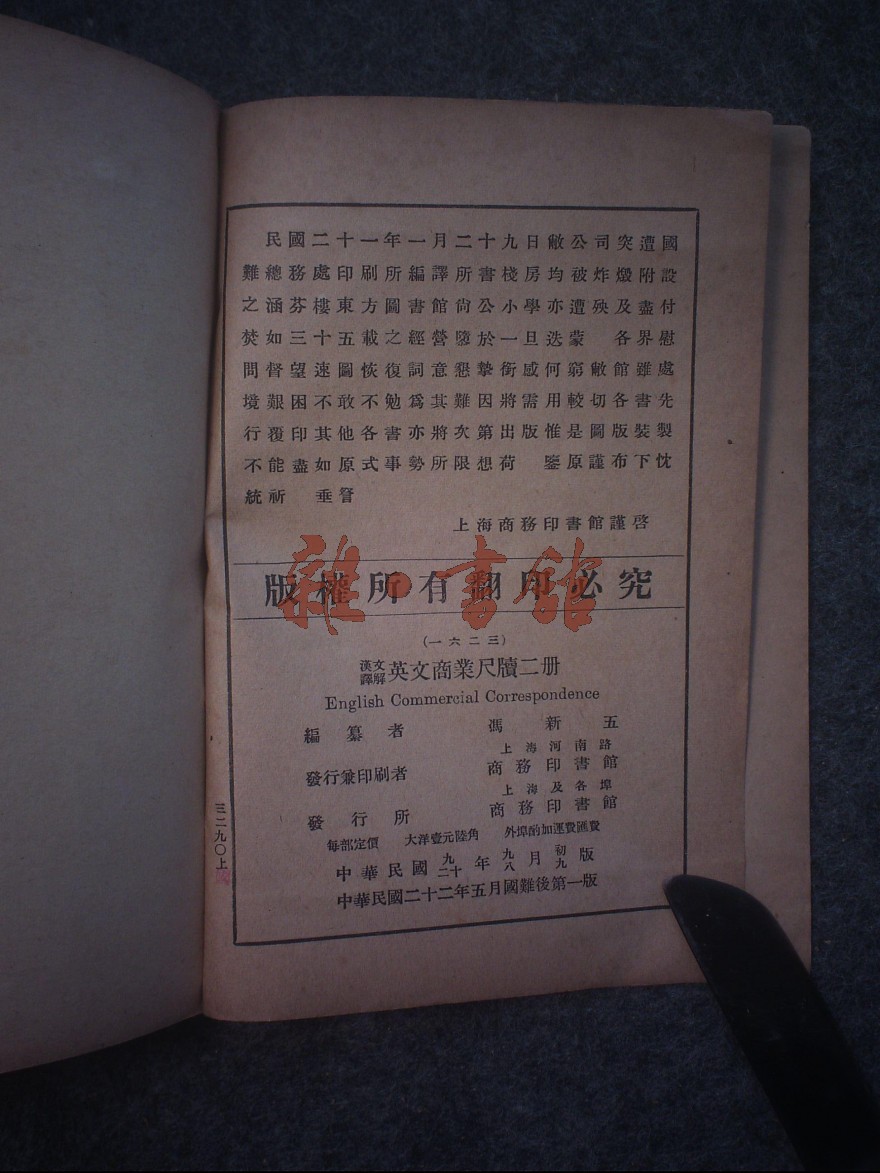 民國二十一年一月二十九日敝公司突遭國
難總務處印刷所編譯所書棧房均被炸燬附設
之涵芬樓東方圖書館尙公小學亦遭殃及盡付
焚如三十五載之經營隳於一旦迭蒙 各界慰
問督望速圖恢復詞意懇摯銜感何窮敝館雖處
境艱困不敢不勉爲其難因將需用較切各書先
行覆印其他各書亦將次第出版惟是圖版裝製
不能盡如原式事勢所限想荷 鑒原謹布下忱
統祈 垂詧
上海商務印書館謹啓
版權所有翻印必究
雜·書館
(一六二三)
漢文譯解英文商業尺牘二册
English Commercial Correspondence
編纂者 馮新五
上海河南路
發行兼印刷者 商務印書館
上海及各埠
發行所 商務印書館
每部定價 大洋壹元陸角 外埠酌加運費匯費
中華民國九年九月初版
二十 八 九
中華民國二十二年五月國難後第一版
三二九〇上